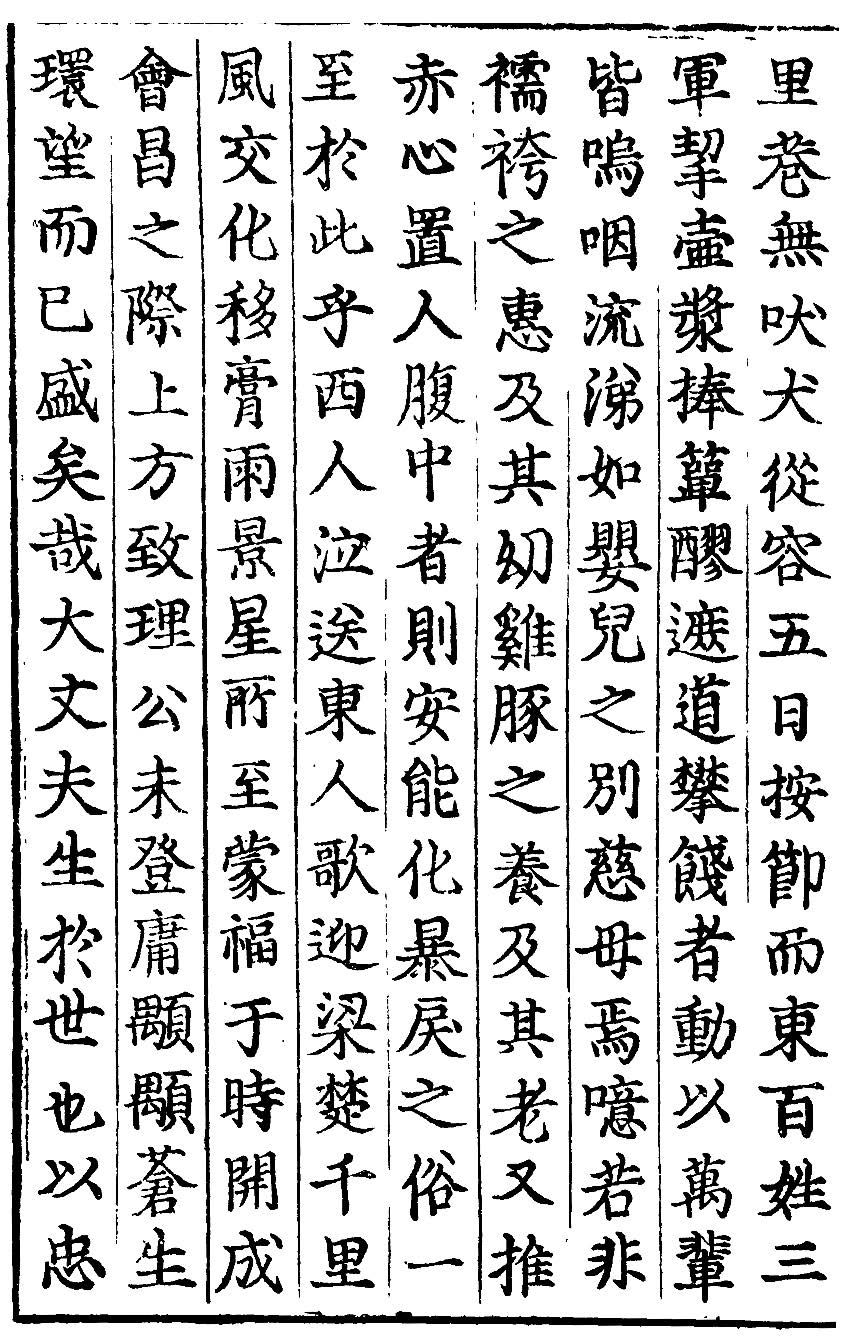 里巷無吠犬從容五日按節而東百姓三
軍挈壺漿捧簞醪遮道攀餞者動以萬輩
皆嗚咽流涕如嬰兒之別慈母焉噫若非
襦袴之惠及其幼雞豚之養及其老又推
赤心置人腹中者則安能化暴戾之俗一
至於此乎西人泣送東人歌迎梁楚千里
風交化移膏雨景星所至蒙福于時開成
會昌之際上方致理公未登庸顒顒蒼生
環望而已盛矣哉大丈夫生於世也以忠